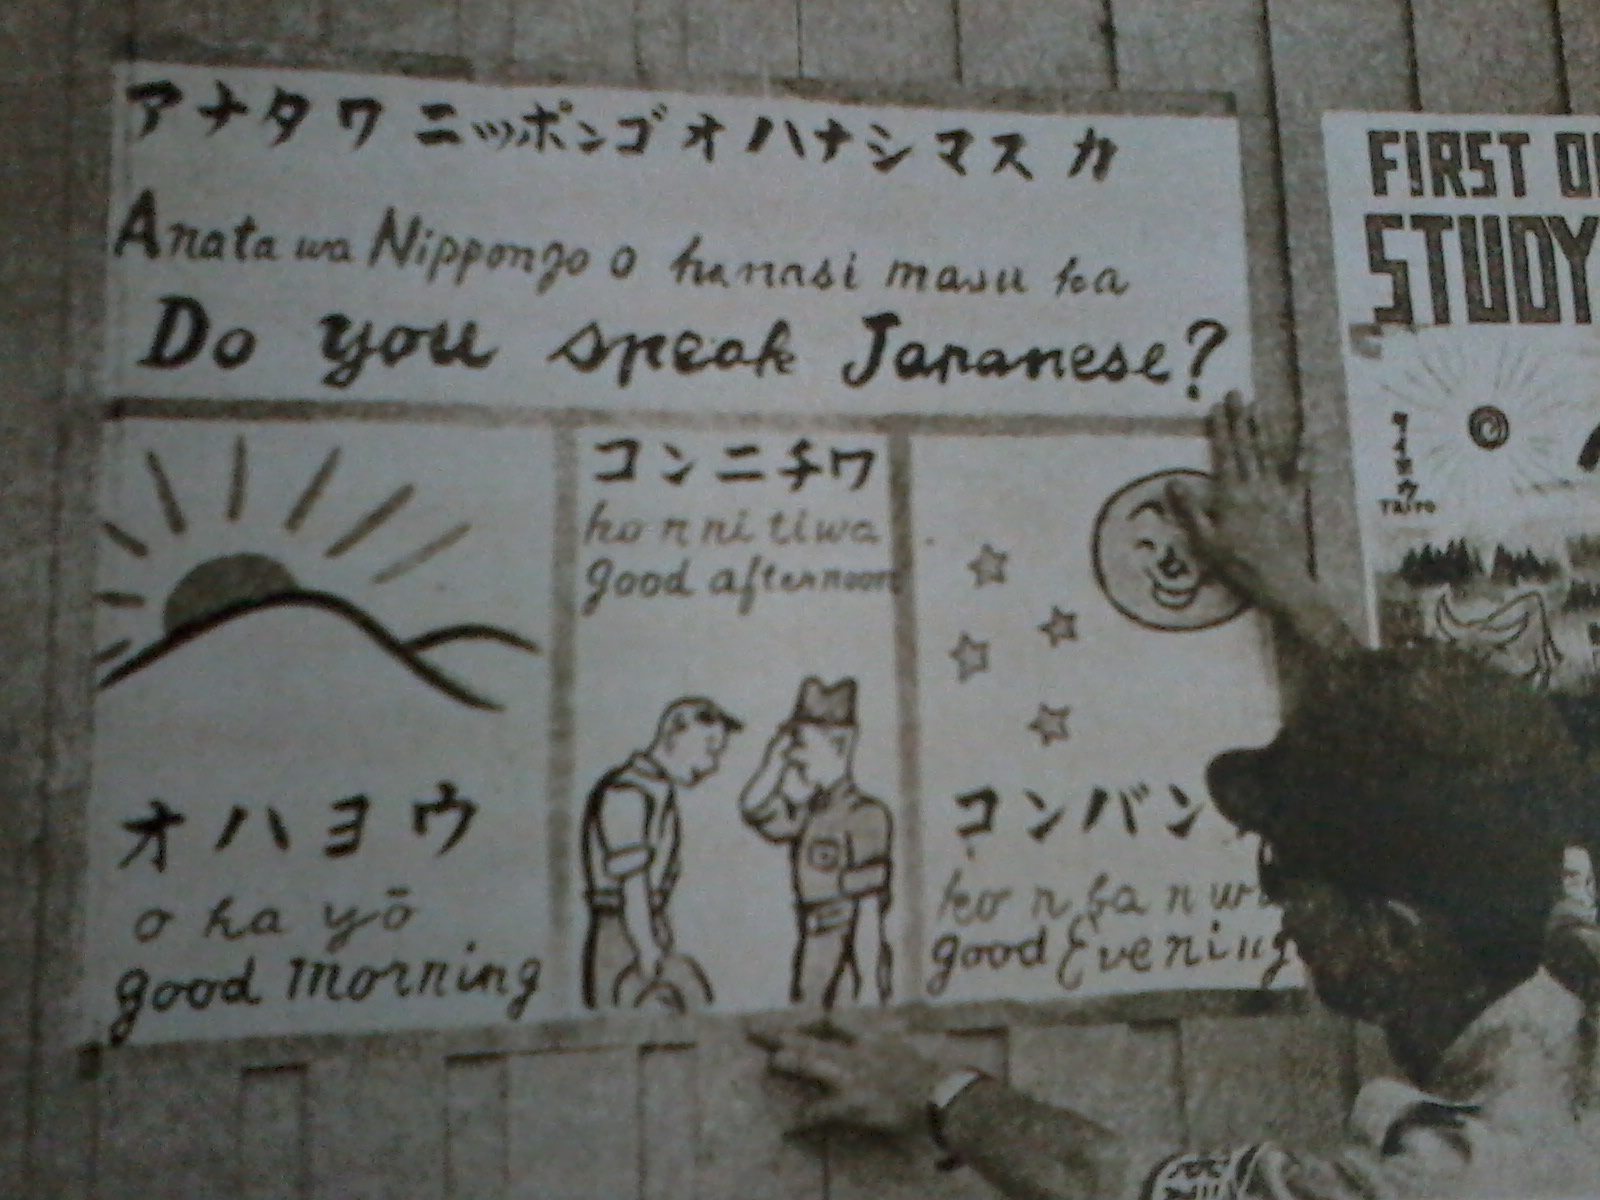 アナタワ ニッポンゴ オ ハナシマス カ
Anata wa Nippongo o hanasi masu ka
Do you speak Japanese?
オハヨウ
o ha yō
good morning
コンニチワ
ko n ni ti wa
good afternoon
コンバン
ko n ba n w
good Evening
FIRST O
STUDY
タイヨウ
TAIYO